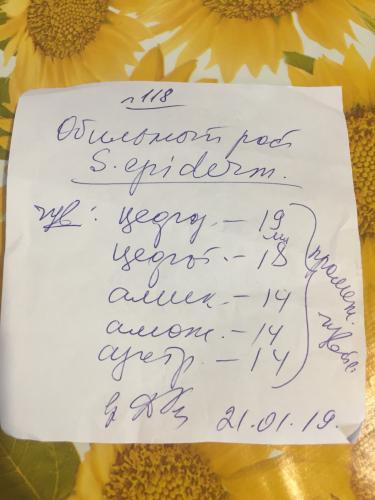 № 118
Обильный рост
S. epiderm.
чув: цефаз. – 19 мм
цефот. – 18
амик. – 14
амок. – 14
– 14
промеж. чувств.
21.01.19.